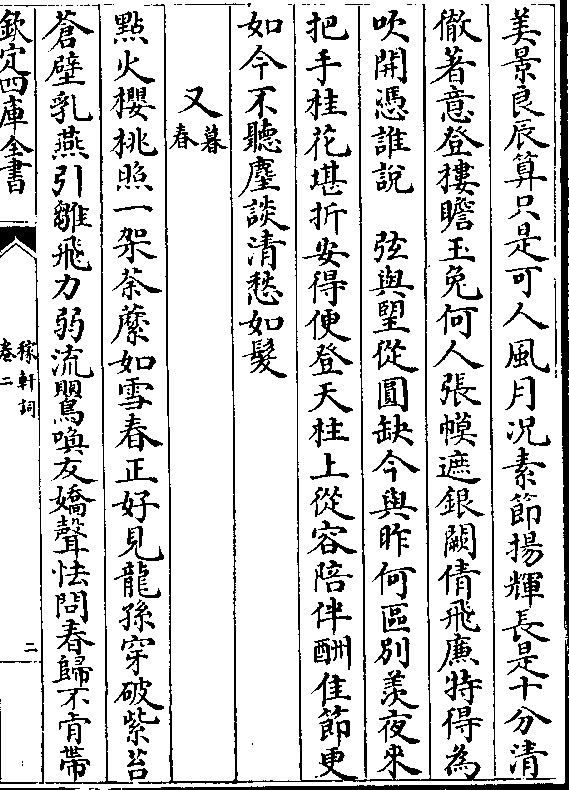 美景良辰算只是可人風月况素節揚輝長是十分清
徹著意登摟瞻玉兔何人張幙遮銀闕倩飛廉特得為
吹開憑誰説　弦與望從圓缺今與昨何區別羡夜來
把手桂花堪折安得便登天柱上從容陪伴酬佳節更
如今不聽麈談清愁如髮
又暮春
點火櫻桃照一架荼蘪如雪春正好見龍孫穿破紫苔
蒼壁乳燕引雛飛力弱流鶯喚友嬌聲怯問春歸不肯帶
欽定四庫全書
稼軒詞
卷二
二